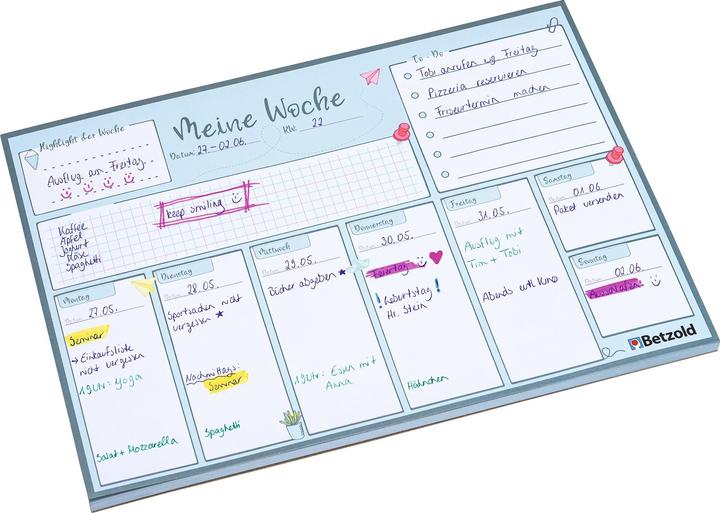 Highlight der Woche
Ausflug am Freitag
Meine Woche
Datum: 27.–02.06. KW: 22
To-Do
Tobi anrufen wg Freitag
Pizzeria reservieren
Friseurtermin machen
keep smiling
Kaffee
Äpfel
Joghurt
Käse
Spaghetti
Montag
Datum: 27.05.
Seminar
→ Einkaufsliste
nicht vergessen
19 Uhr: Yoga
Salat + Mozzarella
Dienstag
Datum: 28.05.
Sportsachen nicht
vergessen
Nachmittags:
Seminar
Spaghetti
Mittwoch
Datum: 29.05.
Bücher abgeben
19 Uhr: Essen mit
Anna
Donnerstag
Datum: 30.05.
Feiertag
! Geburtstag !
Hr. Stein
Hähnchen
Freitag
Datum: 31.05.
Ausflug mit
Tim + Tobi
Abends evtl. Kino
Samstag
Datum: 01.06.
Paket versenden
Sonntag
Datum: 02.06.
Ausschlafen
Betzold